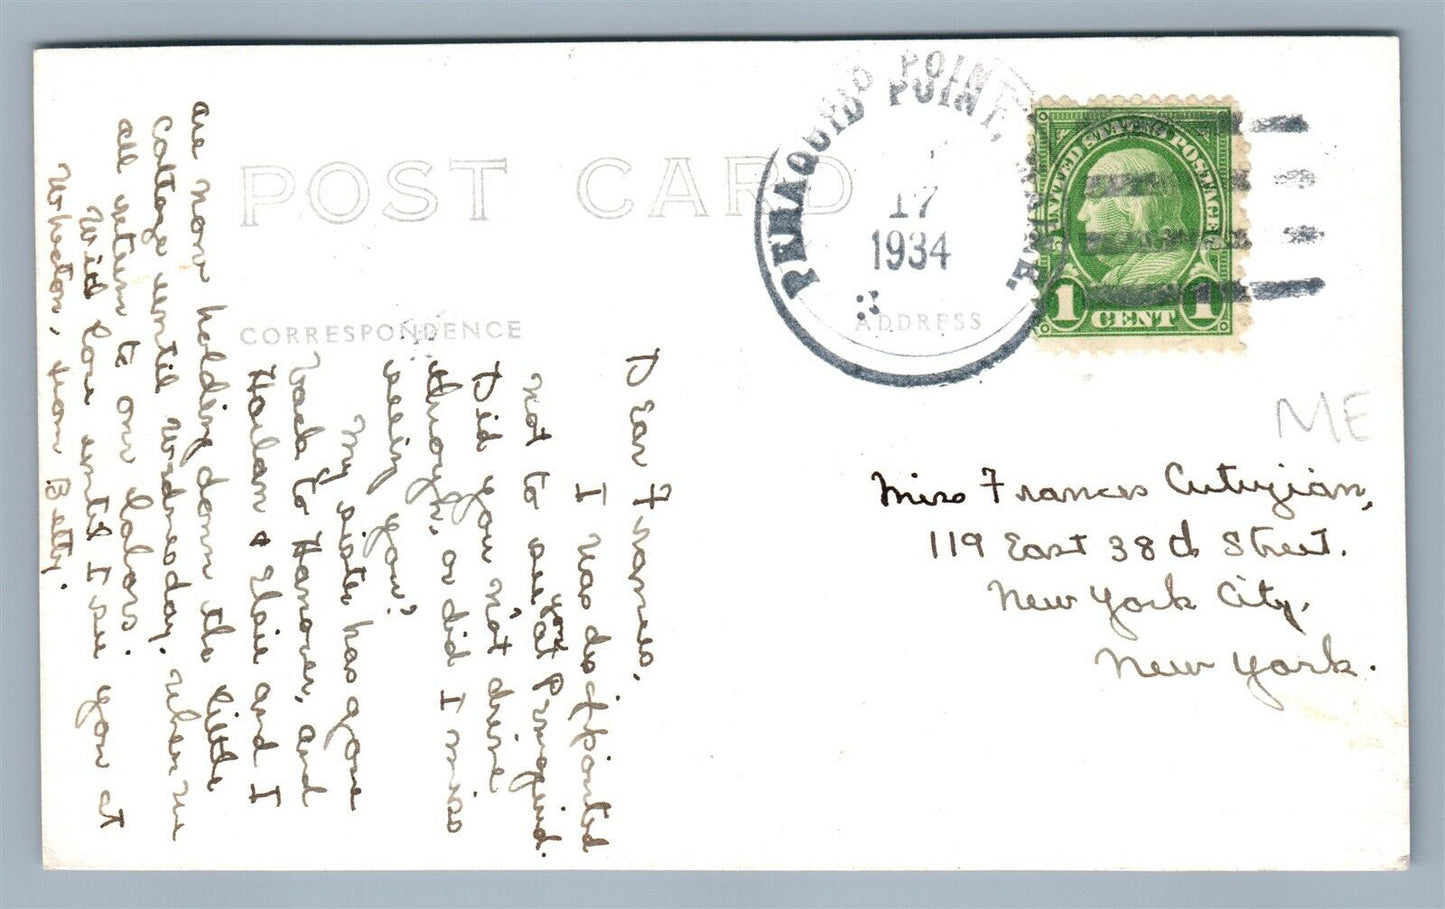 POST CARD
CORRESPONDENCE
ADDRESS
PEMAQUID POINT, MAINE.
17
1934
UNITED STATES POSTAGE
1 CENT 1
ME
Miss Frances Cutujian,
119 East 38th Street.
New York City,
New York.
Dear Frances,
I was disappointed
not to see you at Pemaquid.
Did you not drive
through, or did I miss
seeing you?
My sister has gone
back to Hanover, and
Harlan & Elsie and I
are now holding down the little
Cottage until Wednesday. When we
all return to our labors.
With love until I see you at
Wheaton, from Betty.